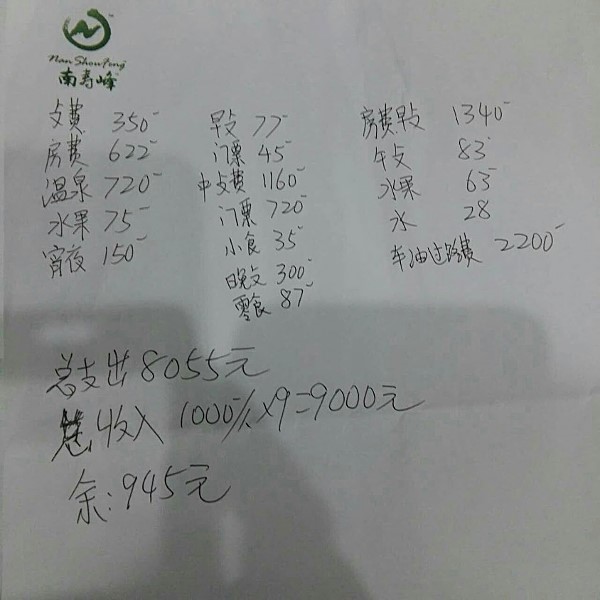 Nan ShowFong
南寿峰
歺費 350
房費 622
温泉 720
水果 75
宵夜 150
早歺 77
门票 45
中歺費 1160
门票 720
小食 35
晚歺 300
零食 87
房費早歺 1340
午歺 83
水果 63
水 28
车油过路費 2200
总支出 8055元
总收入 1000/人×9=9000元
余:945元